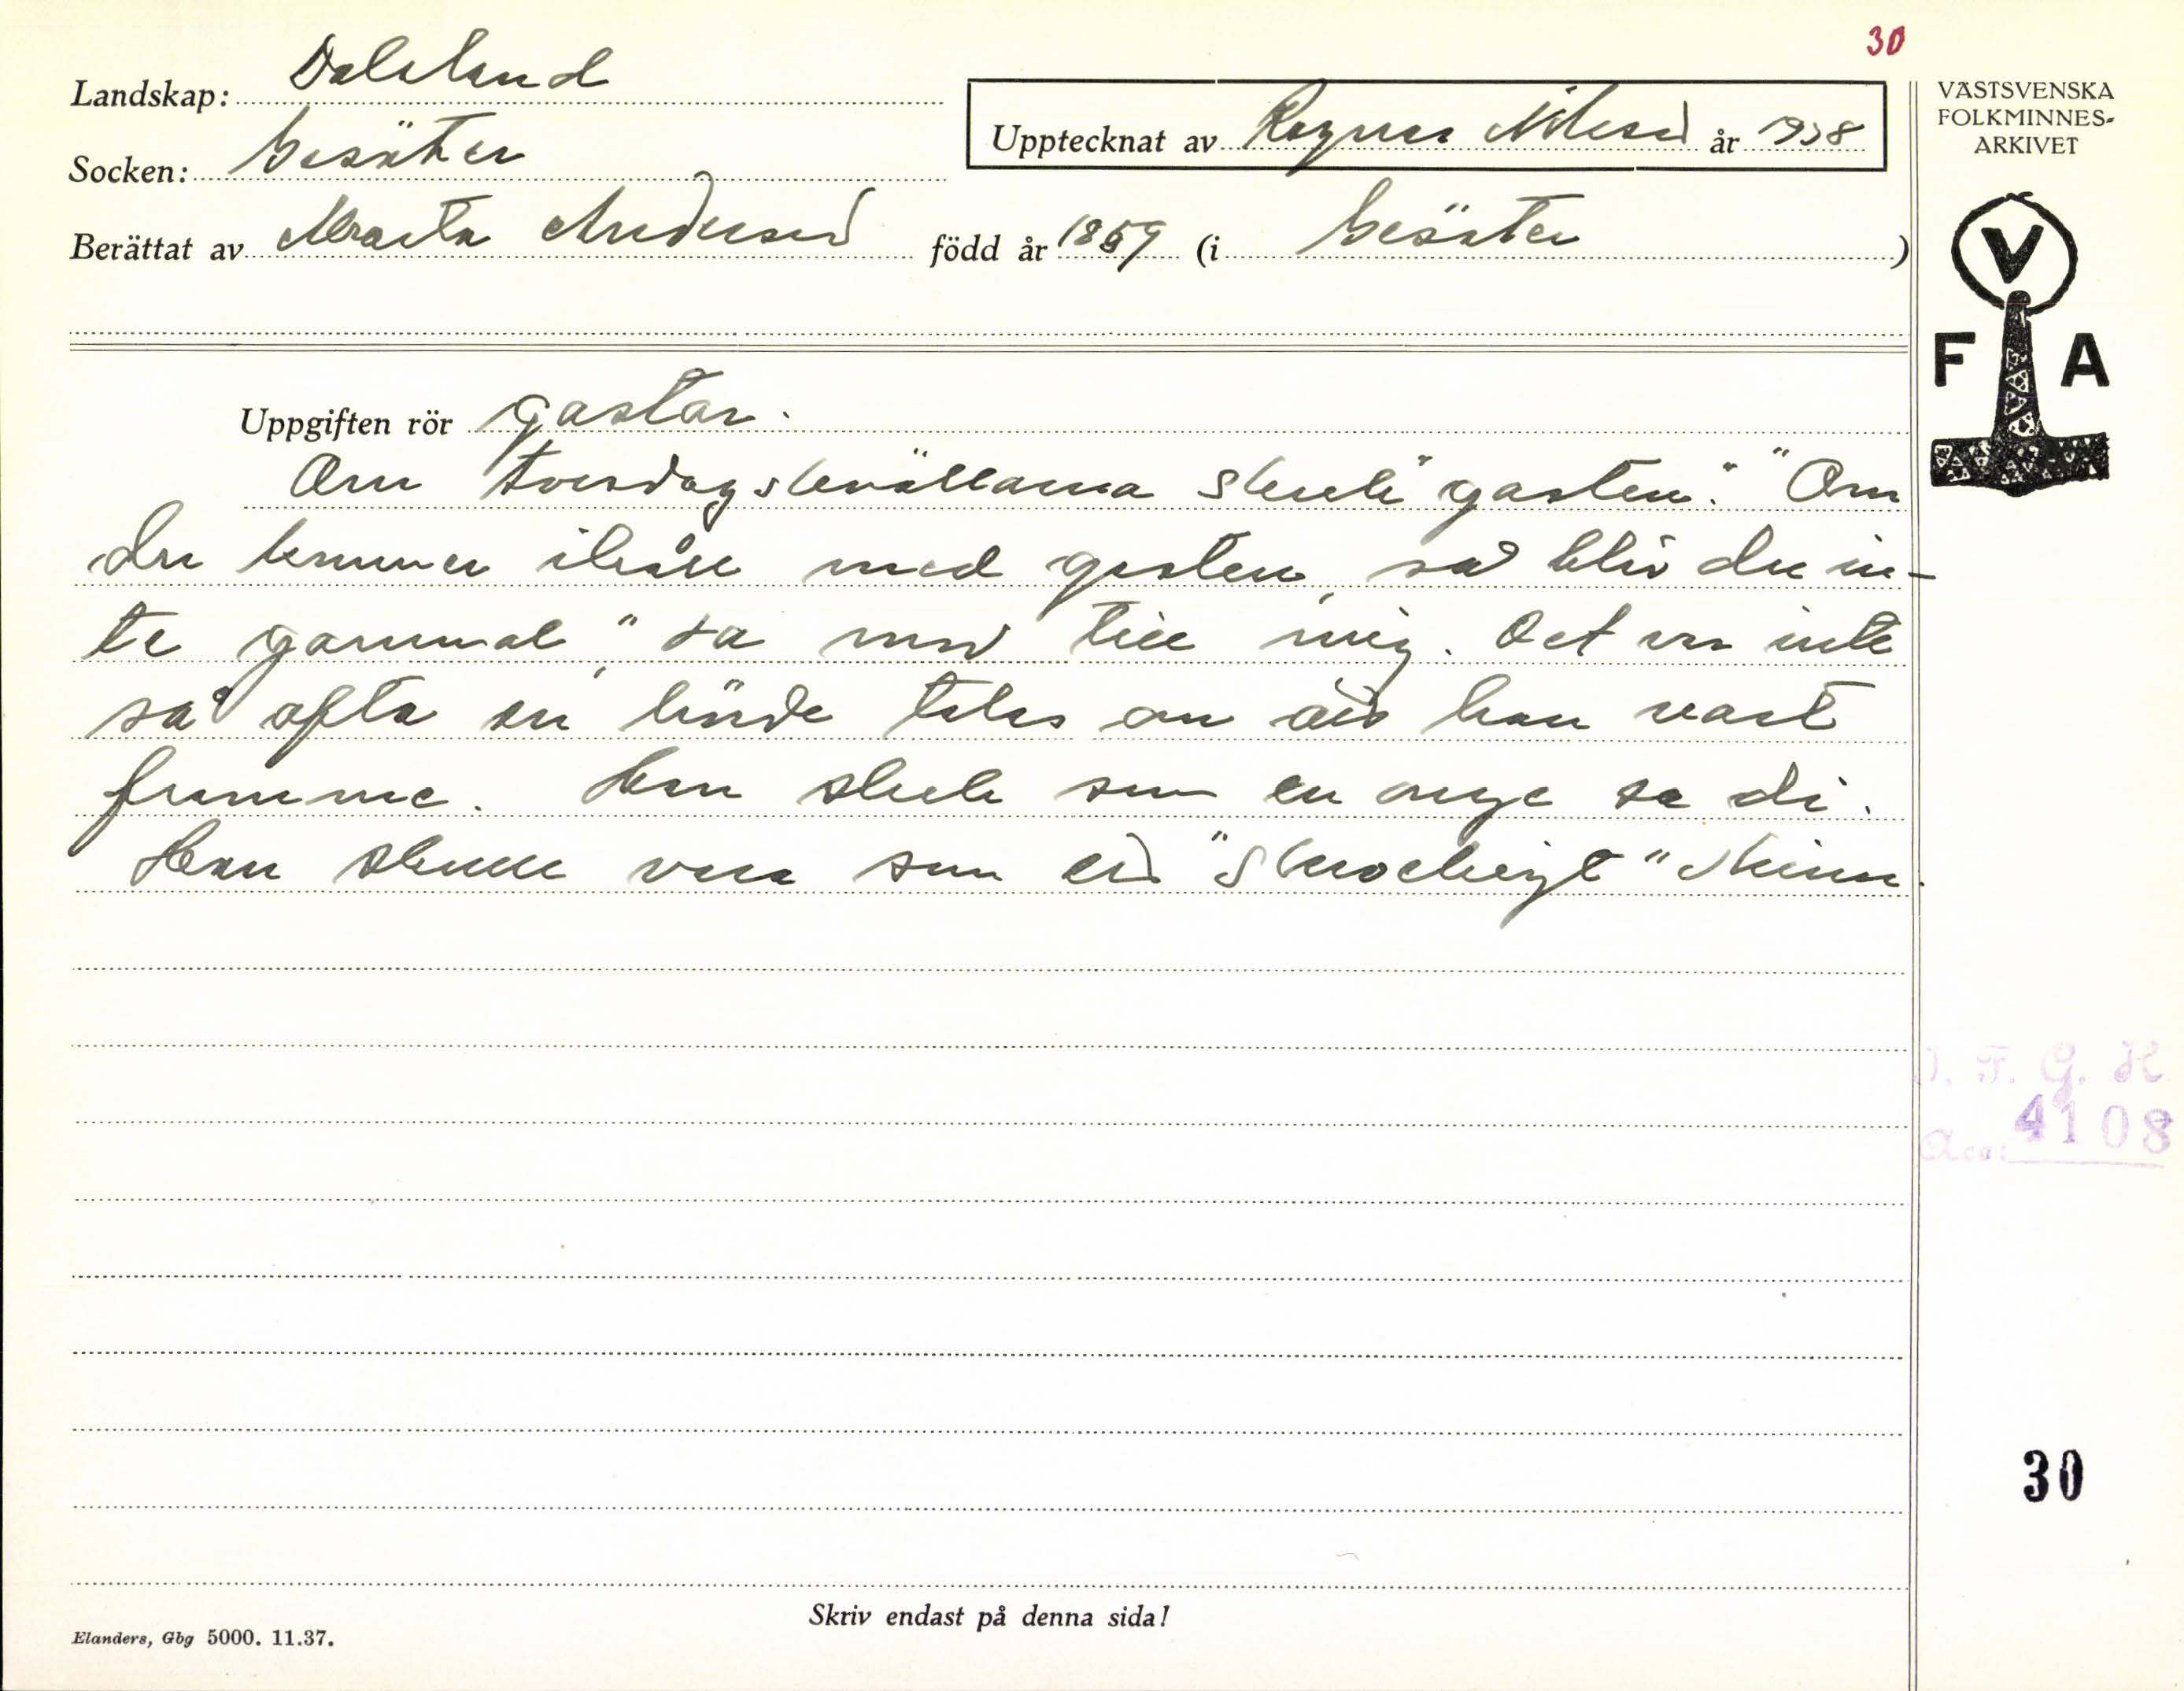 30
Landskap: Dalsland
Socken: Gesäter
Upptecknat av Ragnar Nilsson år 1938
Berättat av Marta Andersson född år 1859 (i Gesäter)
VÄSTSVENSKA
FOLKMINNES-
ARKIVET
V
F A
Uppgiften rör gastar.
Om torsdagskvällarna skrek "gasten". "Om
du kommer ihåll med gasten, så blir du in-
te gammal", sa mor till mig. Det var inte
så ofta en hörde talas om att han vart
framme. Han skrek som en unge sa di.
Han skulle vara som ett "skrovligt"
D. F. G. H
Acc: 4108
30
Skriv endast på denna sida!
Elanders, Gbg 5000. 11.37.